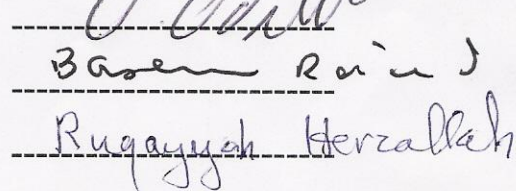 Basem Ra'ad
Ruqayyah Herzallah